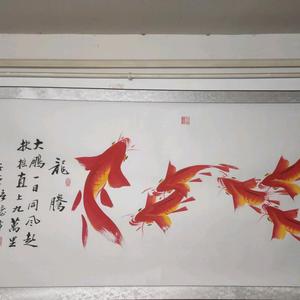 龍騰
大鵬一日同風起
扶摇直上九萬里